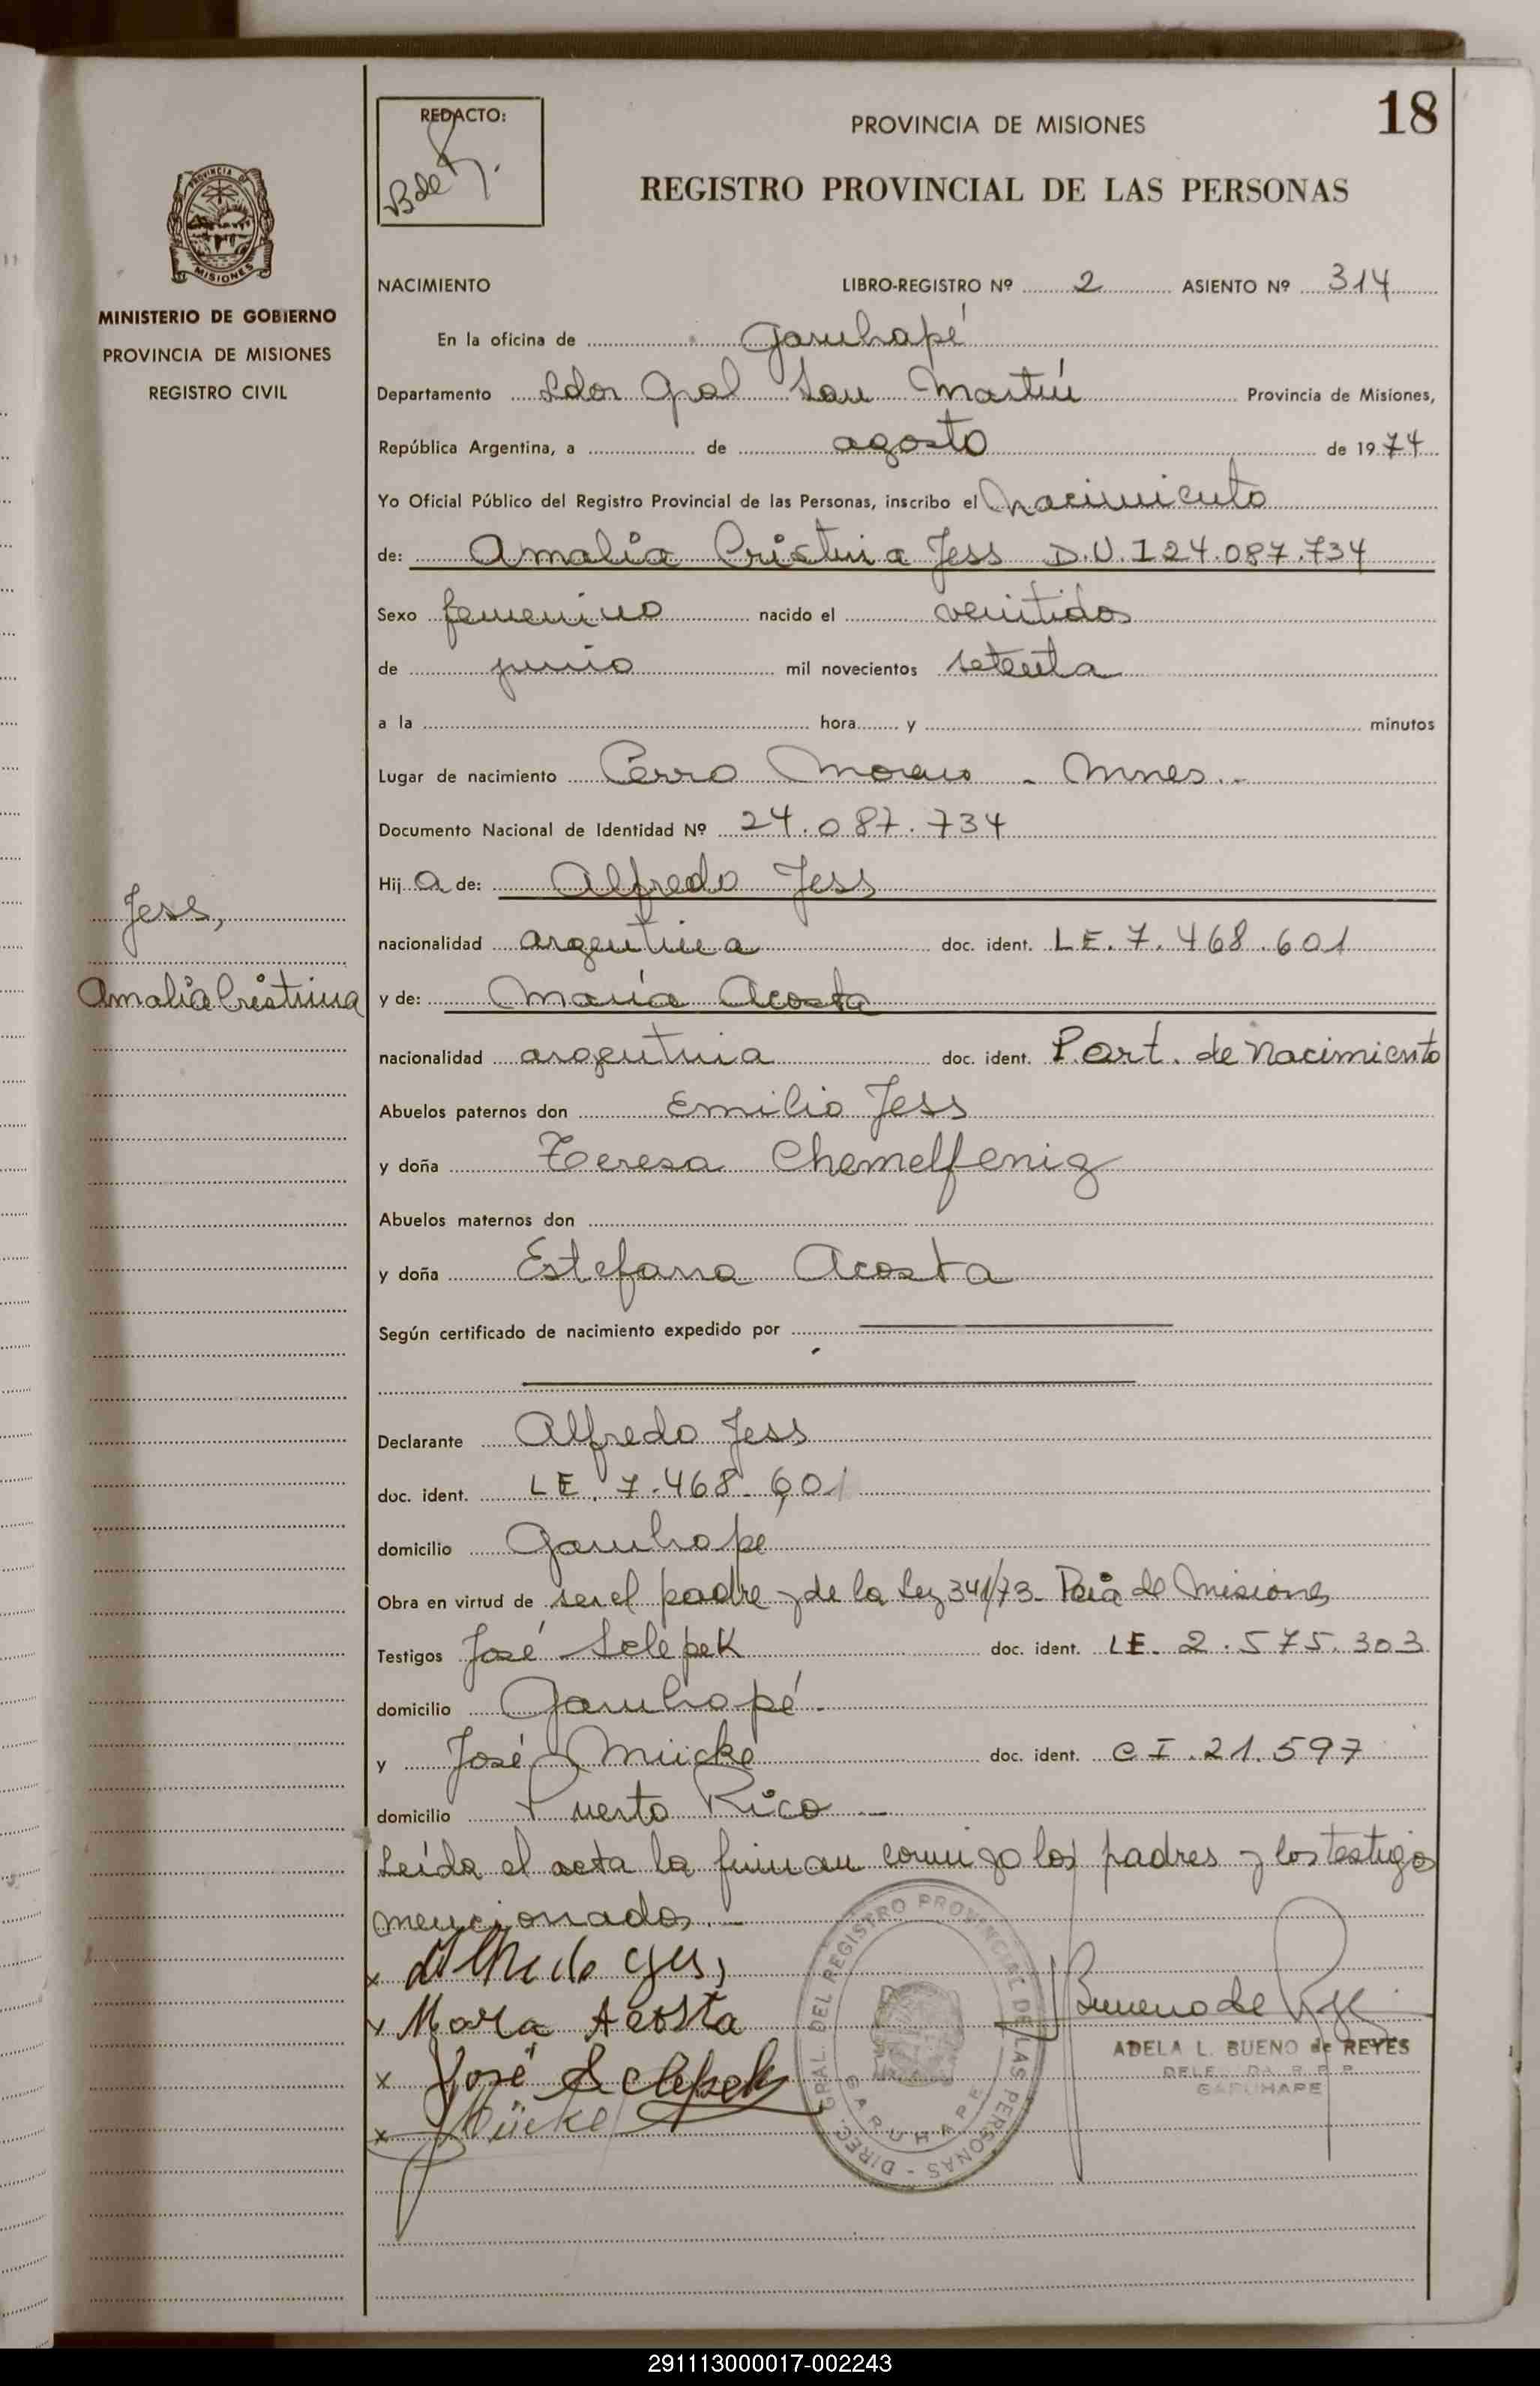 18
REDACTO:
B de R.
PROVINCIA DE MISIONES
REGISTRO PROVINCIAL DE LAS PERSONAS
PROVINCIA DE
MISIONES
MINISTERIO DE GOBIERNO
PROVINCIA DE MISIONES
REGISTRO CIVIL
NACIMIENTO LIBRO-REGISTRO Nº 2 ASIENTO Nº 314
En la oficina de Garuhapé
Departamento Ldor Gral San Martín Provincia de Misiones,
República Argentina, a de agosto de 1974
Yo Oficial Público del Registro Provincial de las Personas, inscribo el nacimiento
de: Amalia Cristina Jess D.U.I 24.087.734
Sexo femenino nacido el veintidos
de junio mil novecientos setenta
a la hora y minutos
Lugar de nacimiento Cerro Moreno - Mnes.-
Documento Nacional de Identidad Nº 24.087.734
Hija de: Alfredo Jess
nacionalidad argentina doc. ident. LE. 7.468.601
Jess,
Amalia Cristina
y de: María Acosta
nacionalidad argentina doc. ident. Part. de Nacimiento
Abuelos paternos don Emilio Jess
y doña Teresa Chemelfenig
Abuelos maternos don
y doña Estefana Acosta
Según certificado de nacimiento expedido por
Declarante Alfredo Jess
doc. ident. LE. 7.468.601
domicilio Garuhapé
Obra en virtud de ser el padre y de la Ley 341/73- Pcia de Misiones
Testigos José Sclepek doc. ident. LE. 2.575.303
domicilio Garuhapé.
y José Mücke doc. ident. C I. 21.597
domicilio Puerto Rico -
Leída el acta la firman conmigo los padres y los testigos
mencionados.-
x Alfredo
x Maria Acosta
x José Sclepek
x Mücke
Bueno de Reyes
ADELA L. BUENO de REYES
DELEGADA R.P.P.
GARUHAPE
DIREC. GRAL. DEL REGISTRO PROVINCIAL DE LAS PERSONAS -
GARUHAPE
291113000017-002243